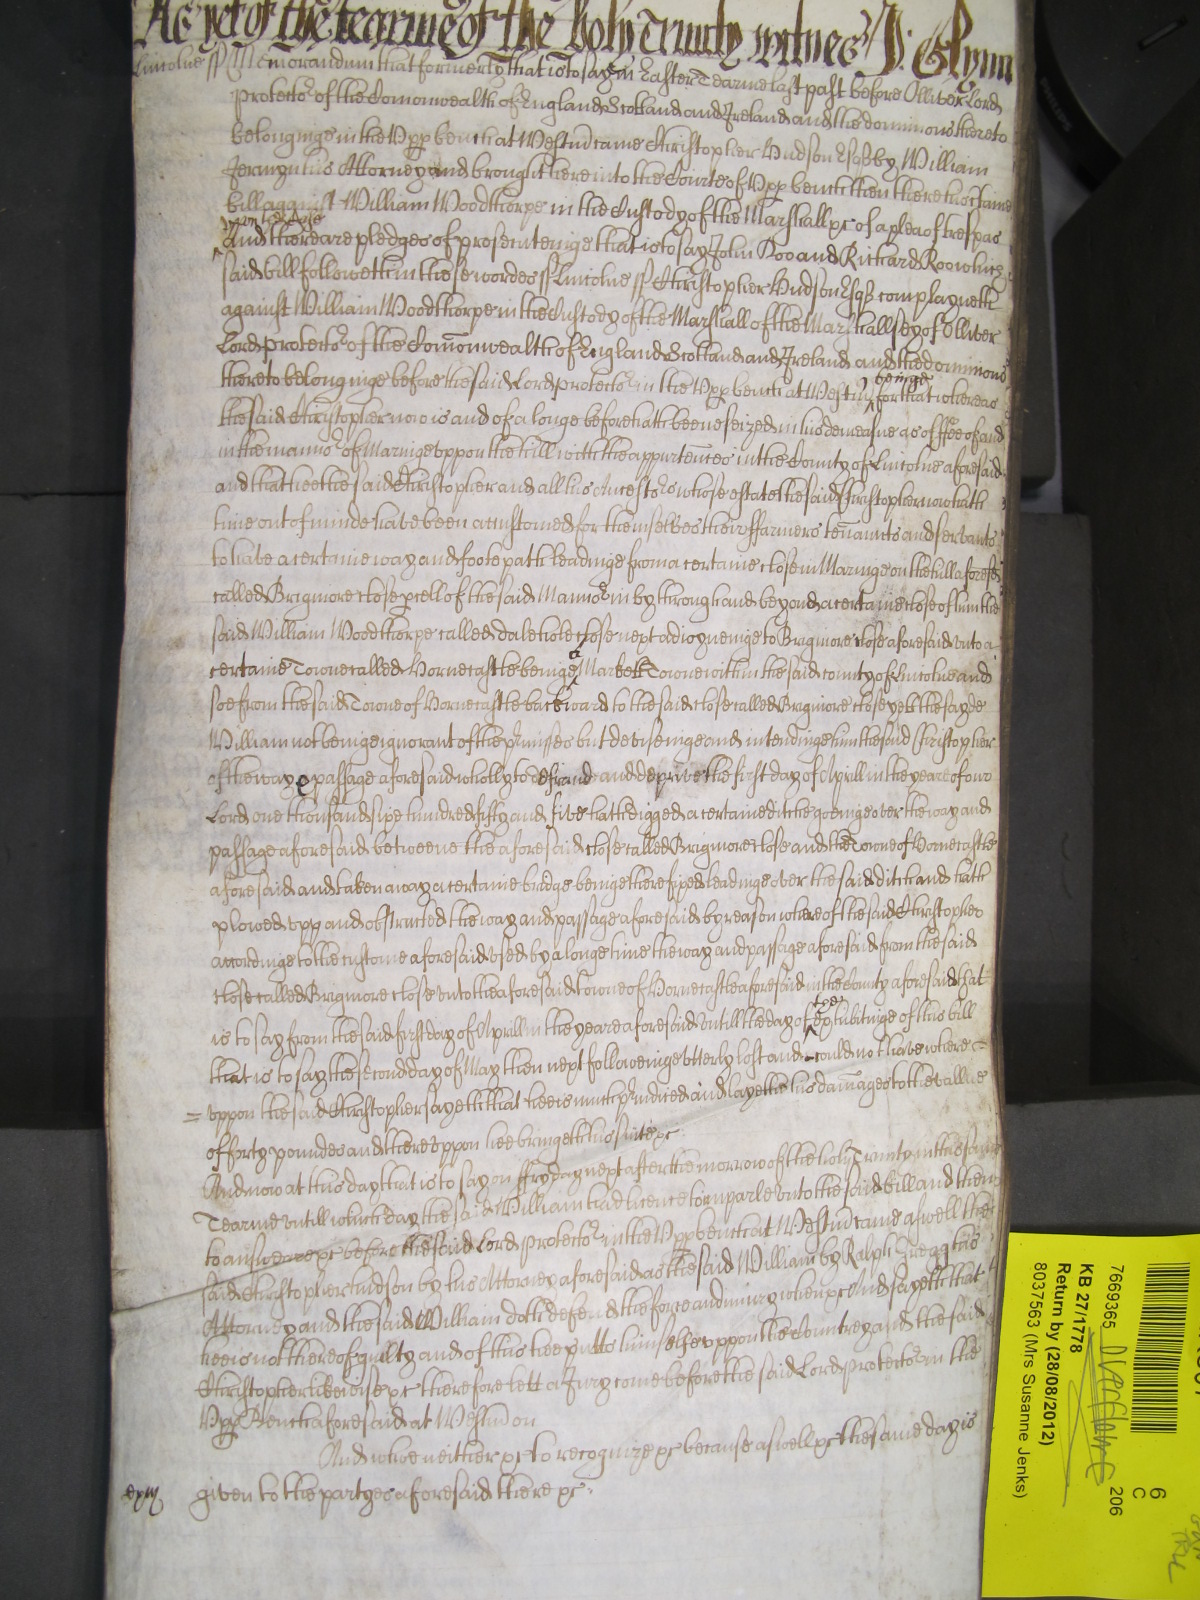 As yet of the tearme of the holy Trinity witnes J: Glynn
Lincolne ss Memorandum that formerly that is to say in Easter Tearme last past before Olliver Lord
Protector of the Comonwealth of England Scotland and Ireland and the dominions thereto
belonginge in the Upp bench at Westm came Christopher Hudson Esqr by William
Jermyn his Attorney and brought here into the Courte of Upp bench then there his certaine
bill against William Woodthorpe in the Custody of the Marshall &c of a plea of trespas
upon the Case
And there are pledges of prosecuteinge that is to say John Doo and Richard Roo which
said bill followeth in these wordes ss Lincolne ss Christopher Hudson Esqr complayneth
against William Woodthorpe in the Custody of the Marshall of the Marshallsey of Olliver
Lord Protector of the Comonwealth of England Scotland and Ireland and the dominions
thereto belonginge before the said Lord Protector in the Upp bench at Westm beinge for that whereas
the said Christopher now is and of a longe before hath beene seized in his demeasne as of ffee of and
in the mannor of Maringe uppon the hill with the appurtences in the County of Lincolne aforesaid
and that hee the said Christopher and all his Ancestors whose estate the said Christopher now hath
time out of minde have been accustomed for themselves their ffarmers tennants and servants
to have a certaine way and foote path leadinge from a certaine close in Maringe on the hill aforesd
called Brigmore close pcell of the said Mannor in by through and beyond a certaine close of him the
said William Woodthorpe called dalehole close next adioyneinge to Brigmore close aforesaid unto a
certaine Towne called Hornecastle beinge a Markett Towne within the said county of Lincolne and
soe from the said Towne of Hornecastle backward to the said close called Brigmore close yett the sayde
William not beinge ignorant of the pmisses but deviseinge and intendinge him the said Christopher
of the way & passage aforesaid wholly to defraud and deprive the first day of Aprill in the yeare of our
Lord one thousand sixe hundred fifty and five hath digged a certaine ditche goeinge over the way and
passage aforesaid betweene the aforesaid close called Brigmore close and the Towne of Hornecastle
aforesaid and taken away a certaine bridge beinge there fixed leadinge over the said ditch and hath
plowed upp and obstructed the way and passage aforesaid by reason whereof the said Christopher
accordinge to the custome aforesaid used by a longe time the way and passage aforesaid from the said
close called Brigmore close unto the aforesaid towne of Hornecastle aforesaid in the County aforesaid that
is to say from the said first day of Aprill in the yeare aforesaid untill the day of the exhibitinge of this bill
that is to say the second day of May then next followeinge utterly lost and could not have where =
= uppon the said Christopher sayeth that hee is much piudiced and layeth his damages to the vallue
of forty poundes and thereuppon hee bringeth his suite &c
And now at this day that is to say on ffryday next after the morrow of the holy Trinity in this same
Tearme untill which day the said William had licence to imparle unto the said bill and then
to answeare &c before the said Lord Protector in the Upp bench at Westm came aswell the
said Christopher Hudson by his Attorney aforesaid as the said William by Ralph Gregg his
Attorney and the said William doth defend the force and iniury when &c And sayeth that
hee is not thereof guilty and of this hee putts himselfe uppon the Countrey and the said
Christopher likewise &c therefore lett a Jury come before the said Lord Protector in the
Upp Bench aforesaid at Westm on
And whoe neither &c to recognize &c because aswell &c the same day is
given to the partyes aforesaid there &c
7669365
KB 27/1778
Return by (28/08/2012)
8037563 (Mrs Susanne Jenks)
206
6
C